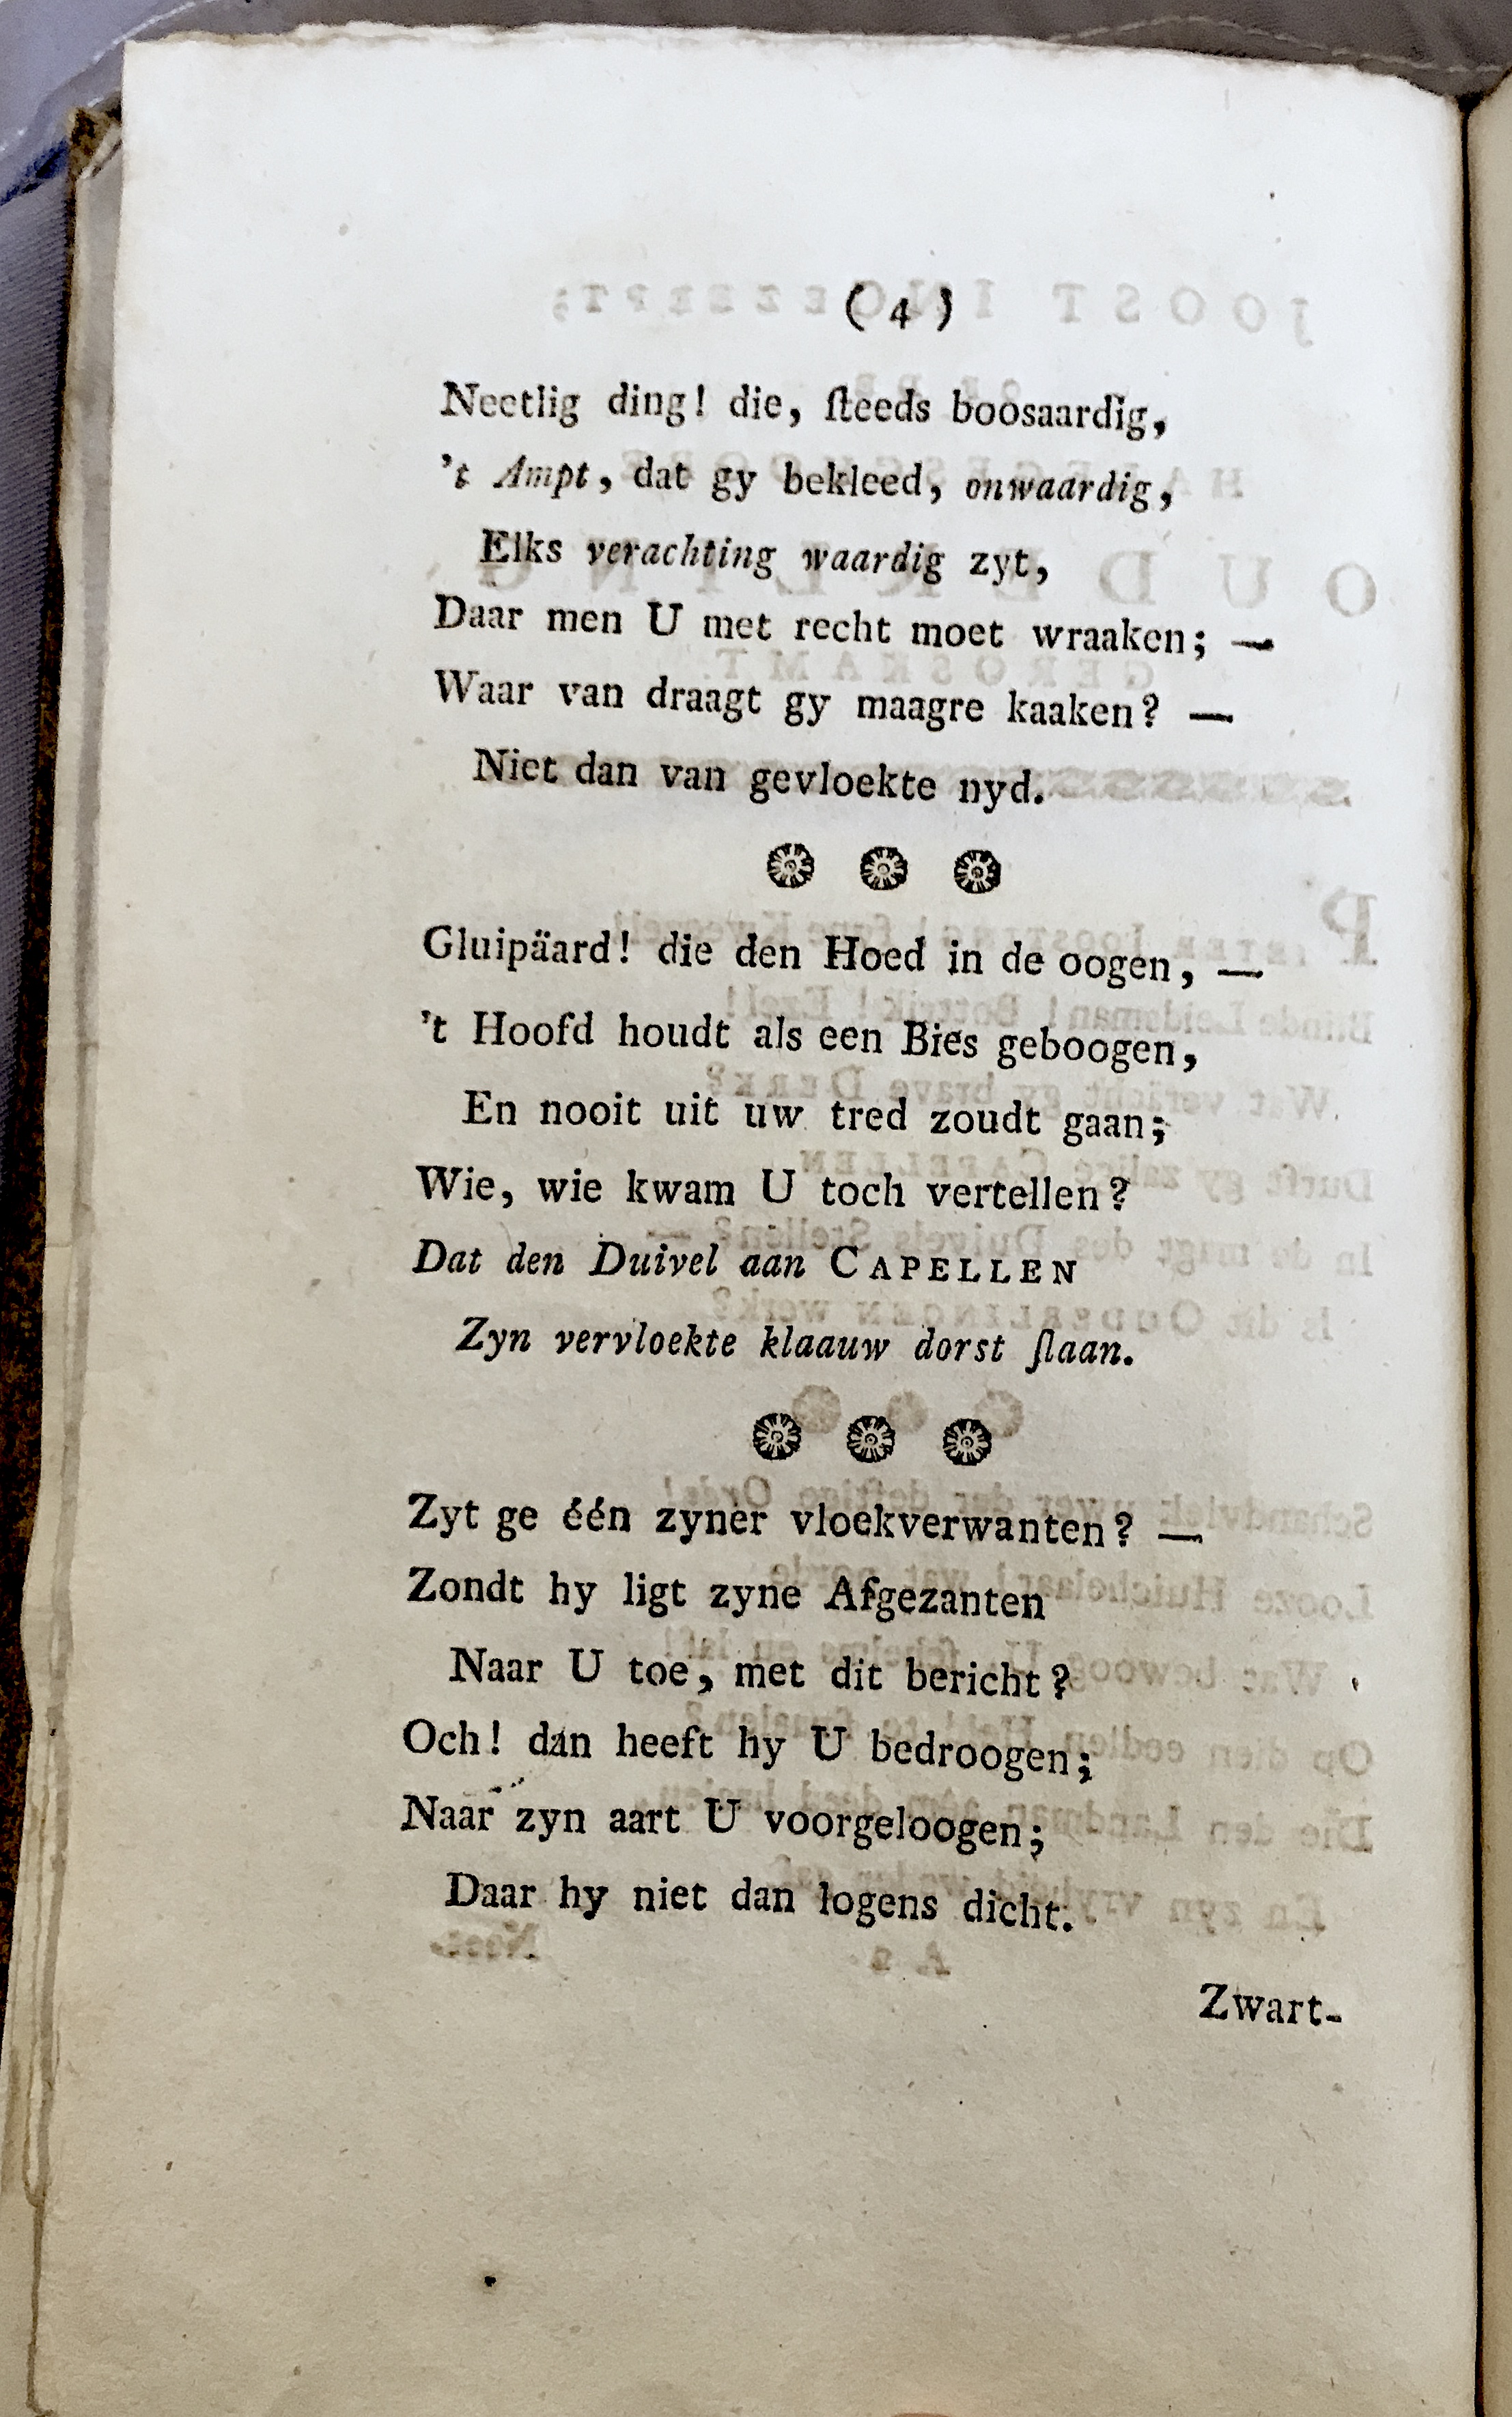 ( 4 )
Neetlig ding! die, ſteeds boosaardig,
't Ampt, dat gy bekleed, onwaardig,
Elks verachting waardig zyt,
Daar men U met recht moet wraaken; —
Waar van draagt gy maagre kaaken? —
Niet dan van gevloekte nyd.
Gluipäard! die den Hoed in de oogen, —
't Hoofd houdt als een Bies geboogen,
En nooit uit uw tred zoudt gaan;
Wie, wie kwam U toch vertellen?
Dat den Duivel aan CAPELLEN
Zyn vervloekte klaauw dorst ſlaan.
Zyt ge één zyner vloekverwanten? —
Zondt hy ligt zyne Afgezanten
Naar U toe, met dit bericht?
Och! dan heeft hy U bedroogen;
Naar zyn aart U voorgeloogen;
Daar hy niet dan logens dicht.
Zwart-